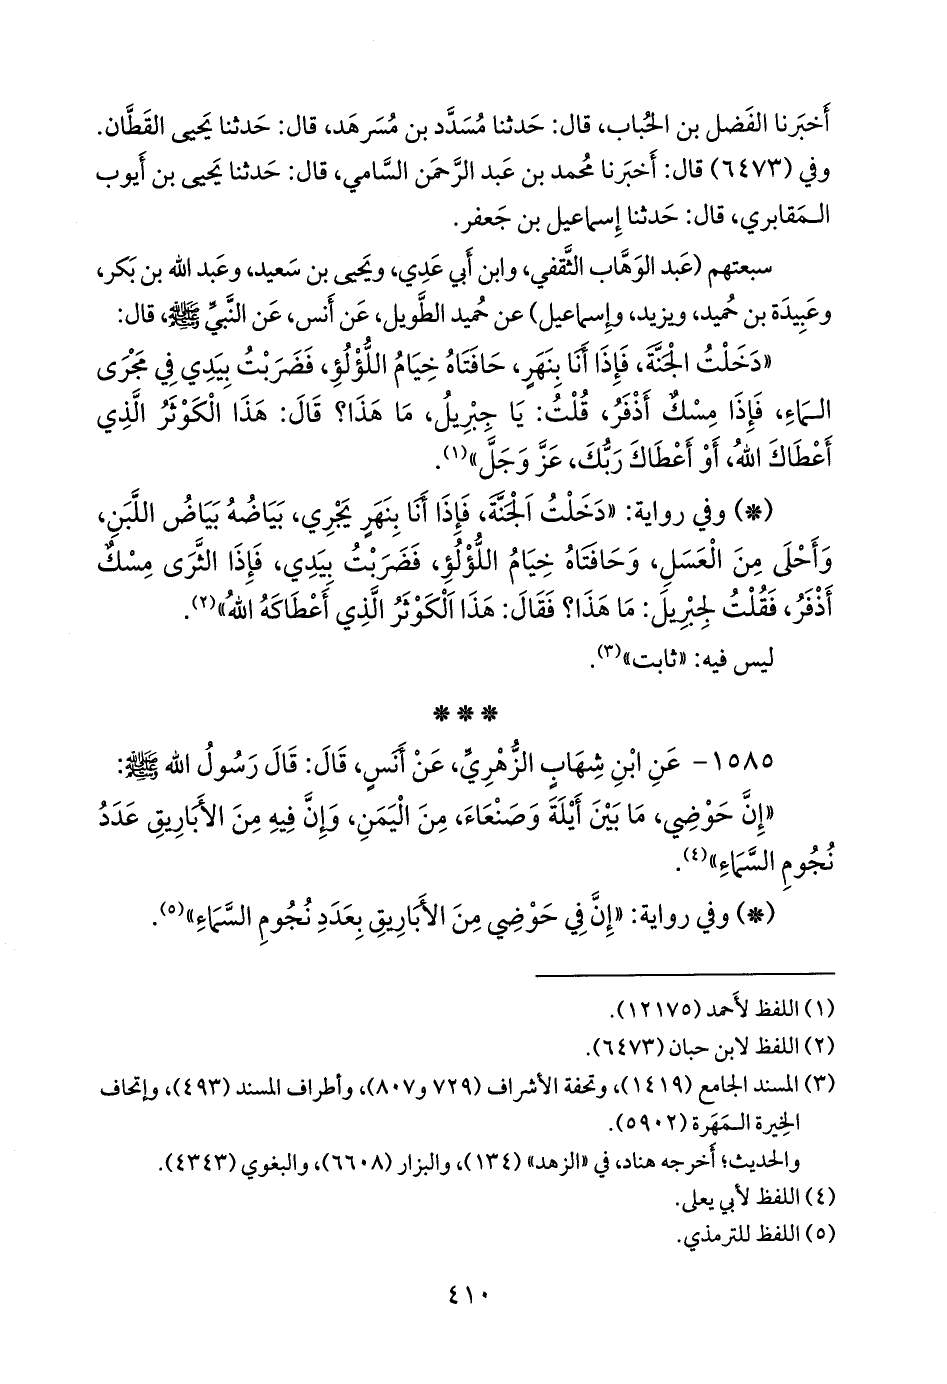 أَخبَرنا الفَضل بن الحُباب، قال: حَدثنا مُسَدَّد بن مُسَرهَد، قال: حَدثنا يَحيى القَطَّان.
وفي (٦٤٧٣) قال: أَخبَرنا مُحمد بن عَبد الرَّحمَن السَّامي، قال: حَدثنا يَحيى بن أَيوب
المَقابري، قال: حَدثنا إِسماعيل بن جَعفر.
سبعتهم (عَبد الوَهَّاب الثَّقفي، وابن أَبي عَدِي، ويَحيى بن سَعيد، وعَبد الله بن بَكر،
وعَبِيدَة بن حُميد، ويزيد، وإِسماعيل) عن حُميد الطَّويل، عَن أَنس، عَن النَّبيِّ ﷺ، قال:
«دَخَلْتُ الجَنَّةَ، فَإِذَا أَنَا بِنَهَرٍ، حَافَتَاهُ خِيَامُ اللُّؤْلُؤِ، فَضَرَبْتُ بِيَدِي فِي مَجْرَى
المَاءِ، فَإِذَا مِسْكٌ أَذْفَرُ، قُلْتُ: يَا جِبْرِيلُ، مَا هَذَا؟ قَالَ: هَذَا الْكَوْثَرُ الَّذِي
أَعْطَاكَ اللهُ، أَوْ أَعْطَاكَ رَبُّكَ، عَزَّ وَجَلَّ»(١).
(*) وفي رواية: «دَخَلْتُ الجَنَّةَ، فَإِذَا أَنَا بِنَهَرٍ يَجْرِي، بَيَاضُهُ بَيَاضُ اللَّبَنِ،
وَأَحْلَى مِنَ الْعَسَلِ، وَحَافَتَاهُ خِيَامُ اللُّؤْلُؤِ، فَضَرَبْتُ بِيَدِي، فَإِذَا الثَّرَى مِسْكٌ
أَذْفَرُ، فَقُلْتُ لِجِبْرِيلَ: مَا هَذَا؟ فَقَالَ: هَذَا الْكَوْثَرُ الَّذِي أَعْطَاكَهُ اللهُ»(٢).
ليس فيه: «ثابت»(٣).
* * *
١٥٨٥- عَنِ ابْنِ شِهَابٍ الزُّهْرِيِّ، عَنْ أَنَسٍ، قَالَ: قَالَ رَسُولُ الله ﷺ:
«إِنَّ حَوْضِي، مَا بَيْنَ أَيْلَةَ وَصَنْعَاءَ، مِنَ الْيَمَنِ، وَإِنَّ فِيهِ مِنَ الأَبَارِيقِ عَدَدُ
نُجُومِ السَّمَاءِ»(٤).
(*) وفي رواية: «إِنَّ فِي حَوْضِي مِنَ الأَبَارِيقِ بِعَدَدِ نُجُومِ السَّمَاءِ»(٥).
(١) اللفظ لأَحمد (١٢١٧٥).
(٢) اللفظ لابن حبان (٦٤٧٣).
(٣) المسند الجامع (١٤١٩)، وتحفة الأشراف (٧٢٩ و٨٠٧)، وأطراف المسند (٤٩٣)، وإتحاف
الخِيرة المَهَرة (٥٩٠٢).
والحديث؛ أخرجه هناد، في «الزهد» (١٣٤)، والبزار (٦٦٠٨)، والبغوي (٤٣٤٣).
(٤) اللفظ لأبي يعلى.
(٥) اللفظ للترمذي.
٤١٠